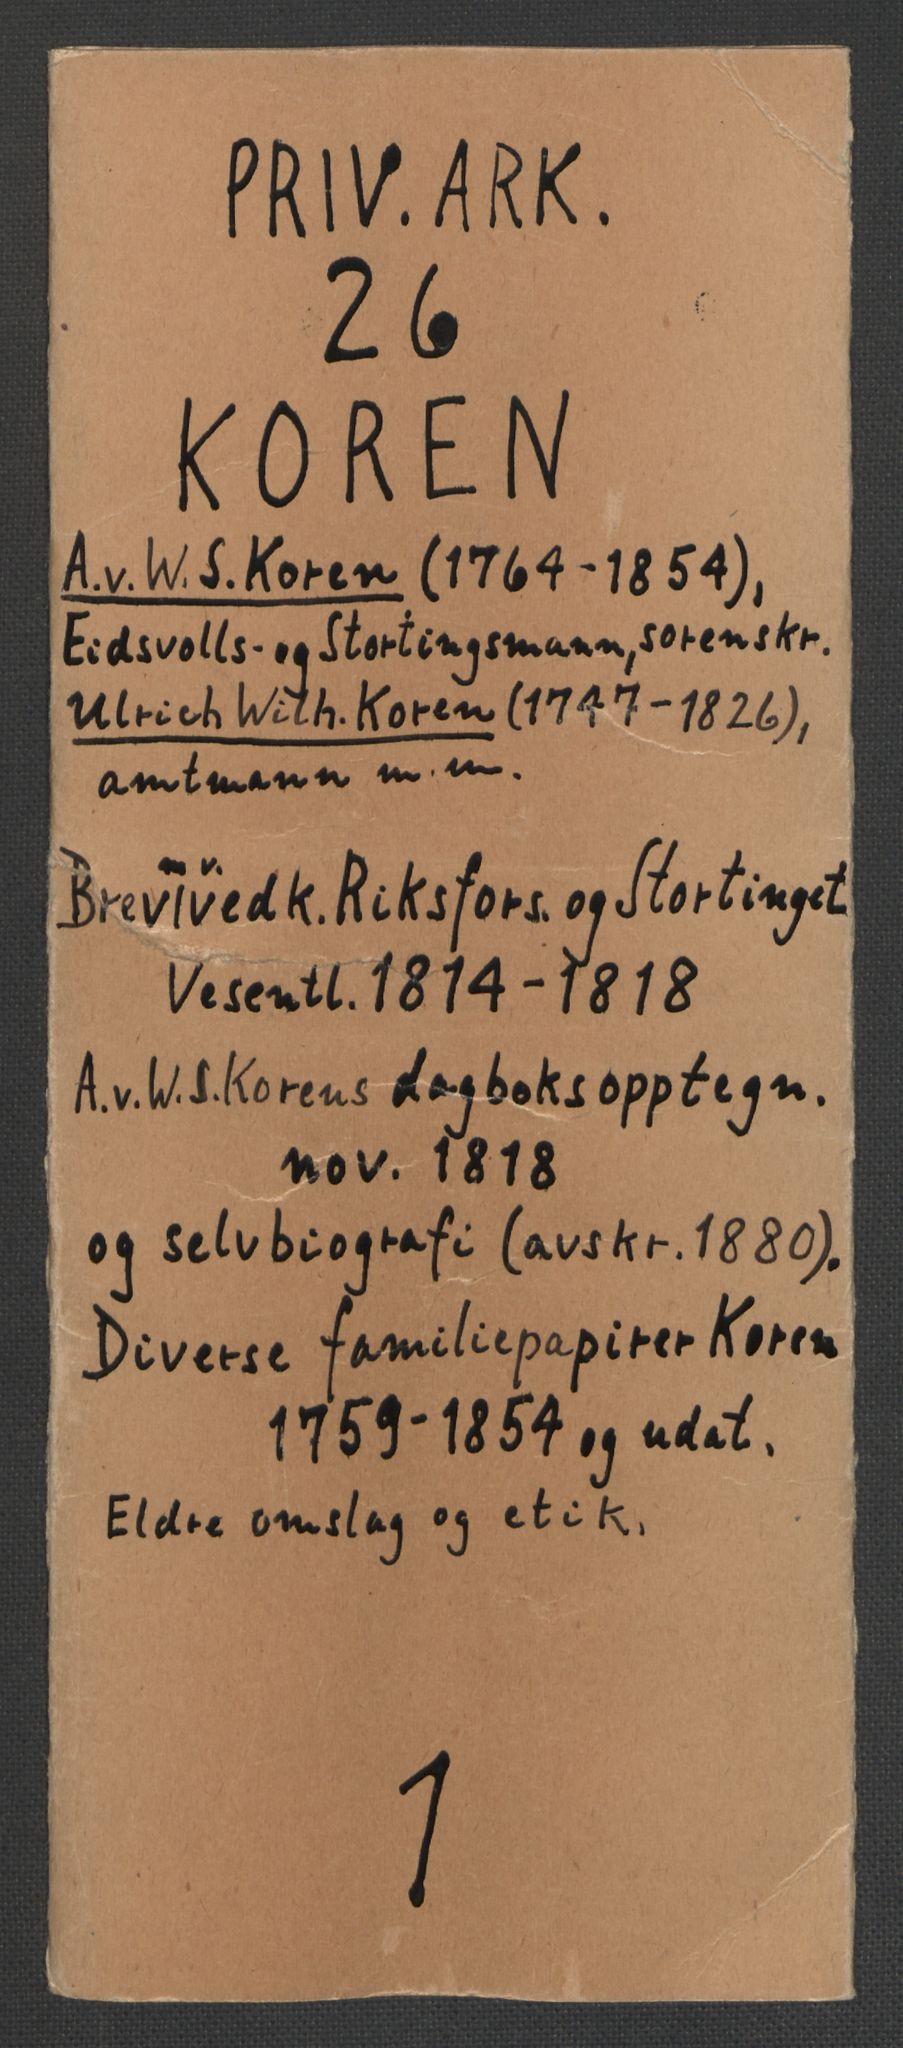 PRIV. ARK.
26
KOREN
A.v.W.S. Koren (1764-1854),
Eidsvolls- og Stortingsmann, sorenskr.
Ulrich Wilh. Koren (1747-1826),
amtmann m.m.
Brev m.v. vedk. Riksfors. og Stortinget
Vesentl. 1814-1818
A.v.W.S. Korens dagboksopptegn.
nov. 1818
og selvbiografi (avskr. 1880).
Diverse familiepapirer Koren
1759-1854 og udat.
Eldre omslag og etik.
1